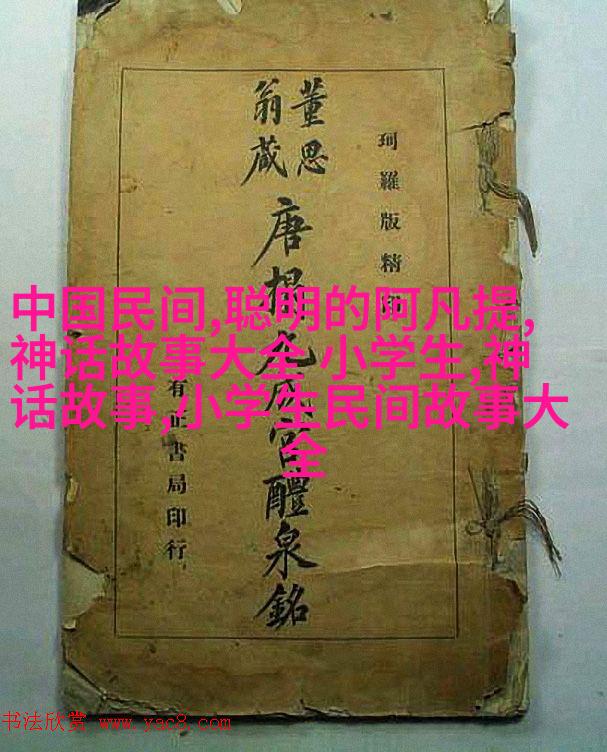 珂羅版精印
董思
翁藏
唐搨九成宮醴泉銘
有正書局印行
中国民间,聪明的阿凡提,
神话故事大全 小学生,神
话故事,小学生民间故事大
全
书法欣赏 www.yac8.com